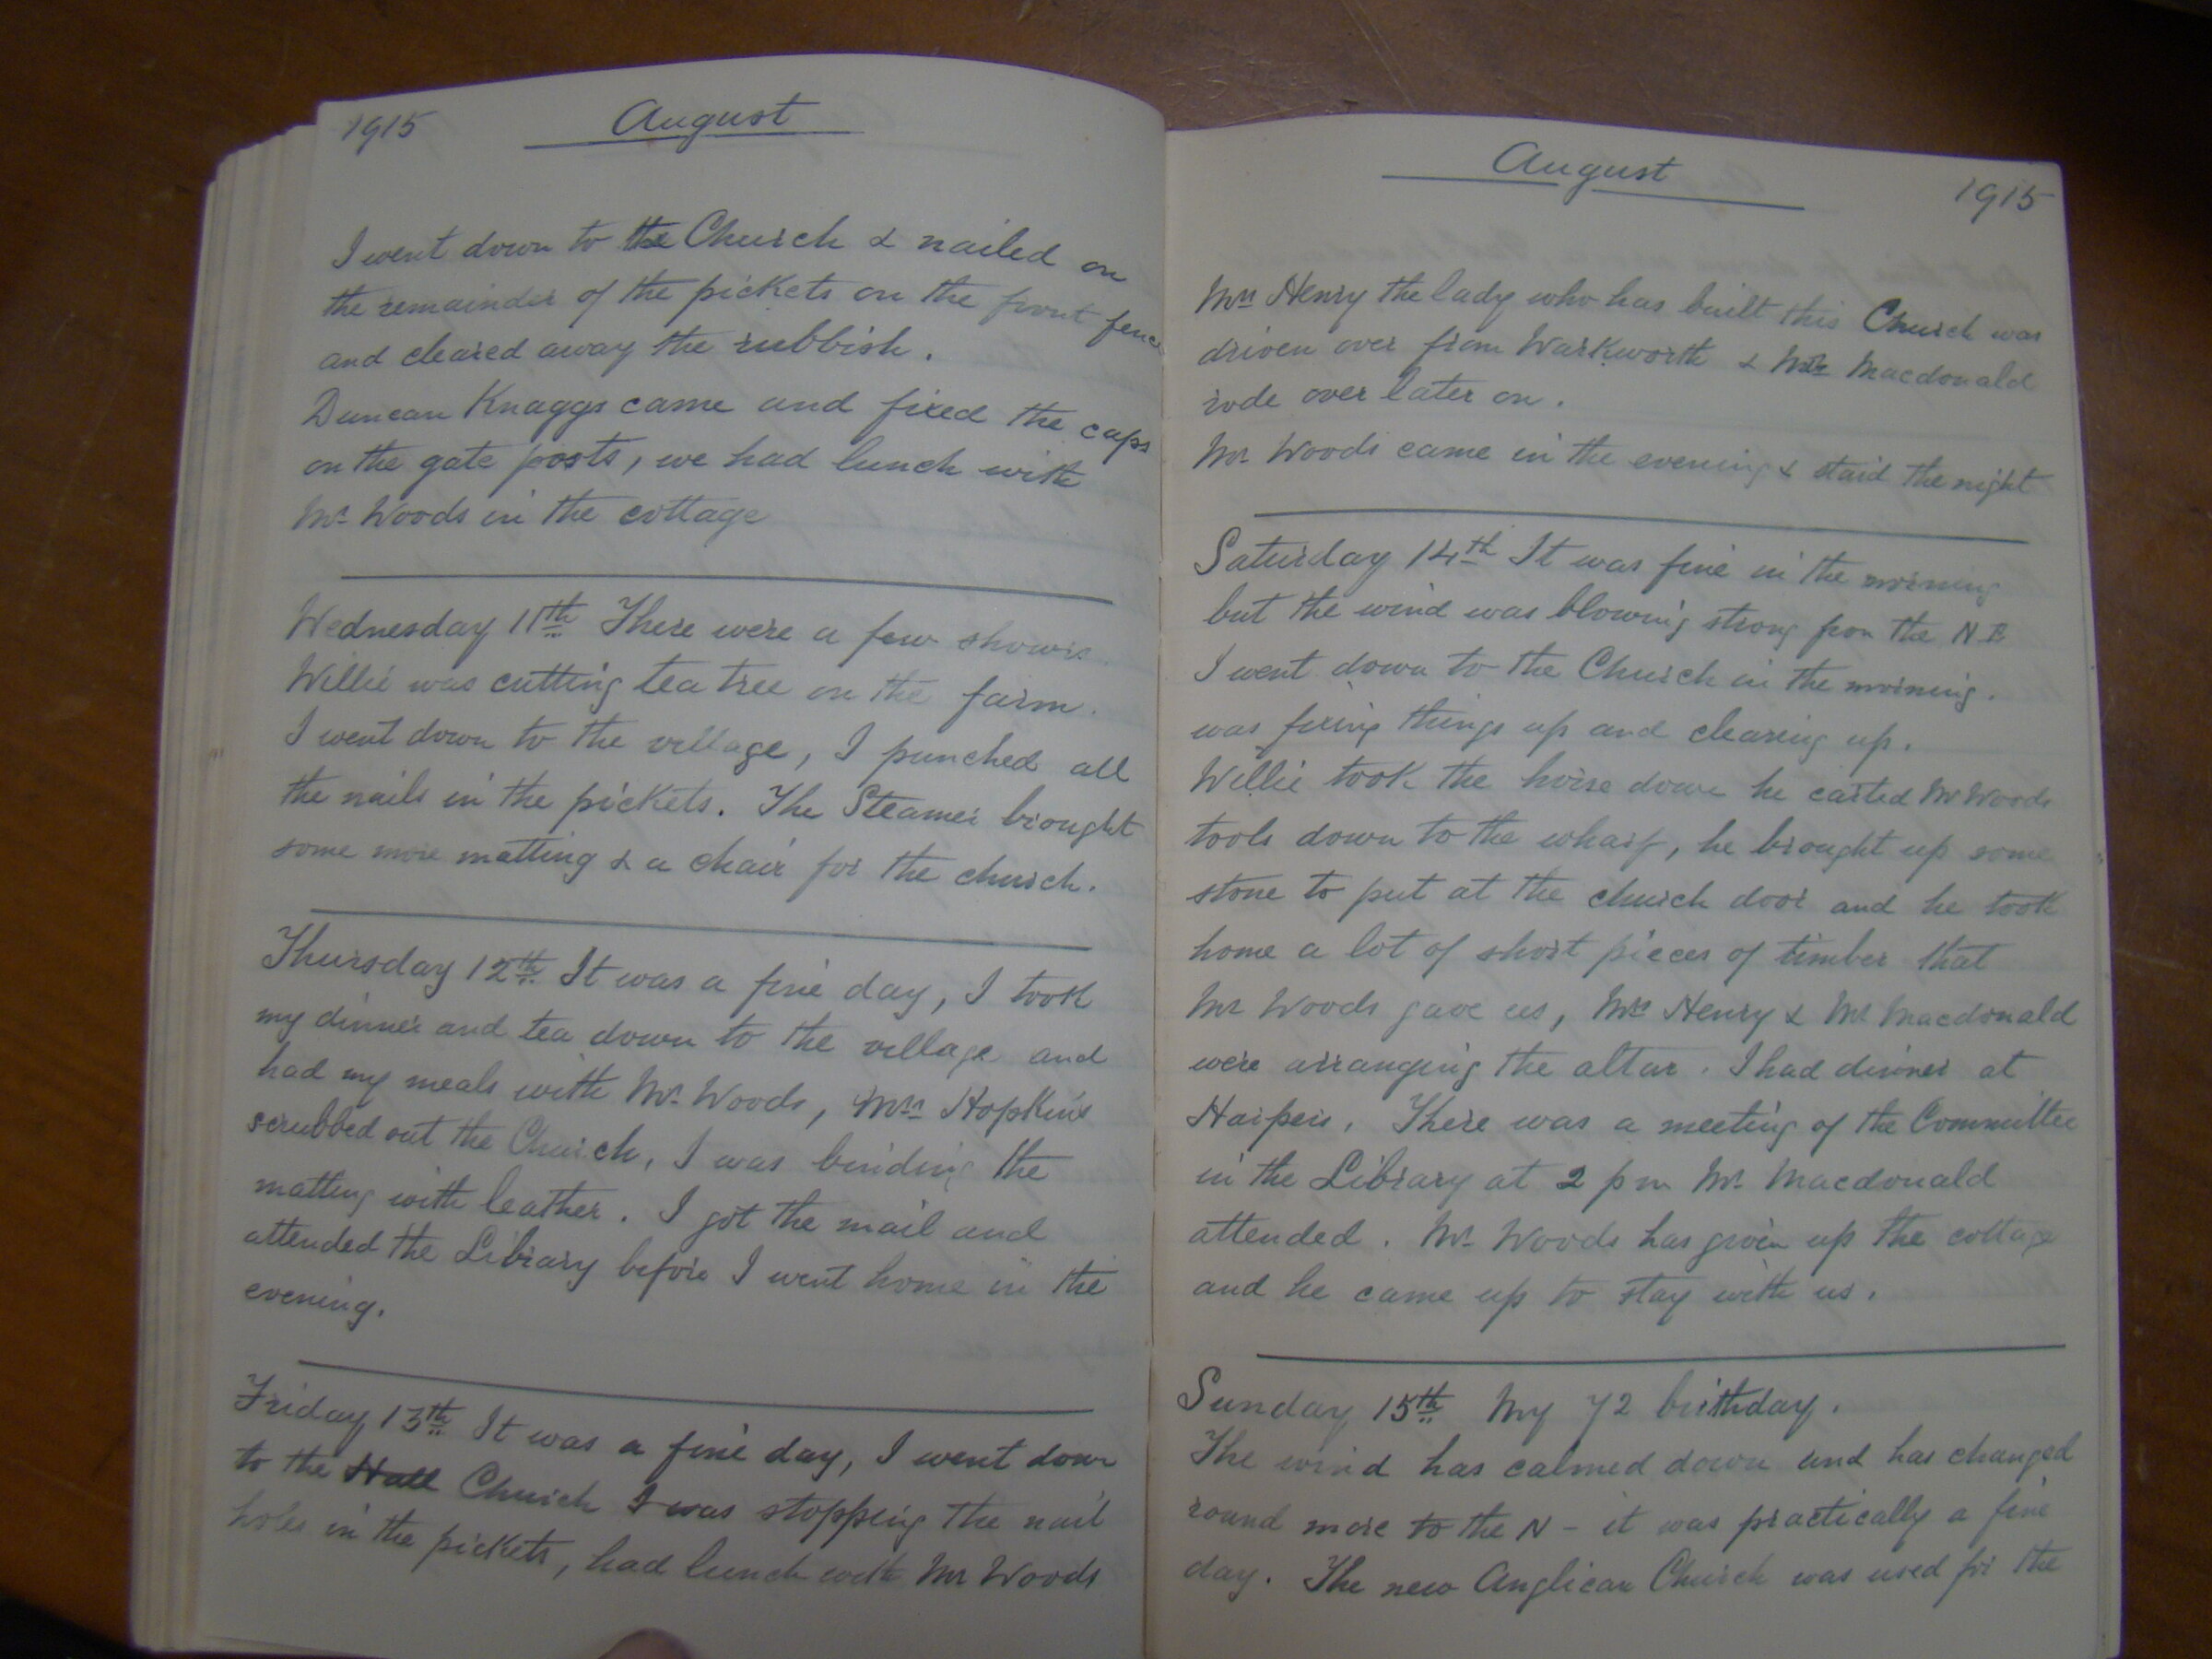 1915 August
I went down to the Church & nailed on
the remainder of the pickets on the front fence
and cleared away the rubbish.
Duncan Knaggs came and fixed the caps
on the gate posts, we had lunch with
Mr Woods in the cottage
Wednesday 11th There were a few showrs
Willie was cutting tea tree on the farm.
I went down to the village, I punched all
the nails in the pickets. The Steamer brought
some more matting & a chair for the church.
Thursday 12th It was a fine day, I took
my dinner and tea down to the village and
had my meals with Mr Woods, Mrs Hopkins
scrubbed out the Church, I was binding the
matting with leather. I got the mail and
attended the Library before I went home in the
evening.
Friday 13th It was a fine day, I went down
to the Hall Church I was stopping the nail
holes in the pickets, had lunch with Mr Woods
August 1915
Mrs Henry the lady who has built this Church was
driven over from Warkworth & Mr Macdonald
rode over later on.
Mr Woods came in the evening & staid the night
Saturday 14th It was fine in the morning
but the wind was blowing strong from the N.E
I went down to the Church in the morning.
was fixing things up and clearing up.
Willie took the horse down he carted Mr Woods
tools down to the wharf, he brought up some
stone to put at the church door and he took
home a lot of short pieces of timber that
Mr Woods gave us, Mrs Henry & Mr Macdonald
were arranging the altar. I had dinner at
Harpers. There was a meeting of the Committee
in the Library at 2 pm Mr Macdonald
attended. Mr Woods has given up the cottage
and he came up to stay with us.
Sunday 15th My 72 birthday.
The wind has calmed down and has changed
round more to the N - it was practically a fine
day. The new Anglican Church was used for the